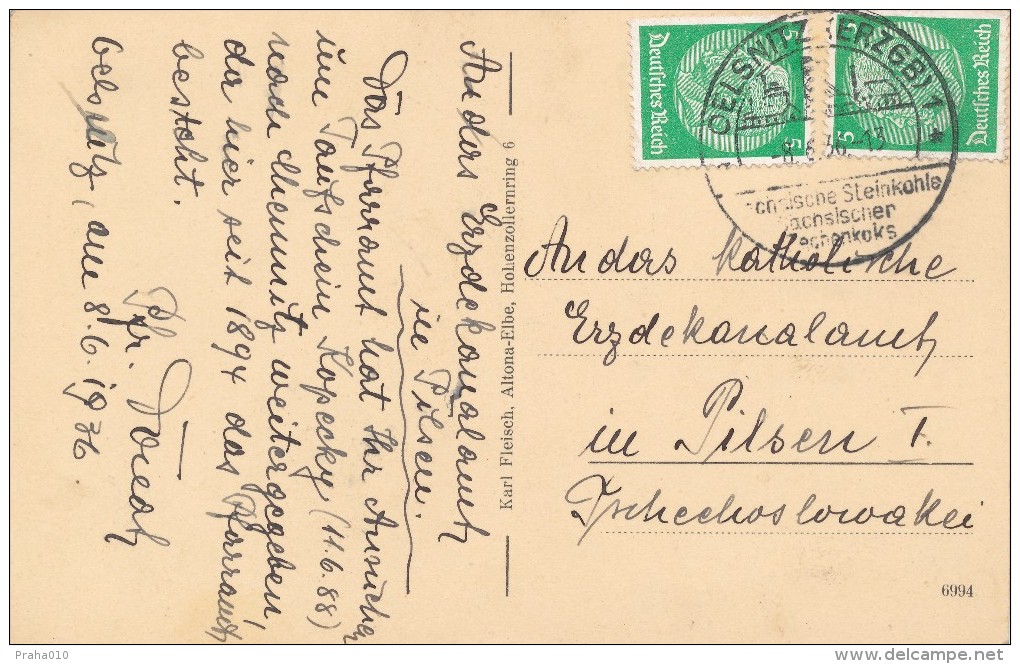 An das Erzdekanalamt
in Pilsen.
Das Pfarramt hat Ihr Ansuchen
um Taufschein Kopecky (11.6.88)
nach Chemnitz weitergegeben,
da hier seit 1894 das Pfarramt
besteht.
Pfr.
Oelsnitz, am 8.6.1936
Karl Fleisch, Altona-Elbe, Hohenzollernring 6
Deutsches Reich
5
5
Deutsches Reich
5
5
OELSNITZ (ERZGB) 1
-8.6.36.-13
chsische Steinkohle
ächsischer
echenkoks
An das katholische
Erzdekanalamt
in Pilsen I.
Tschechoslowakei
6994
Praha010
delcampe.net